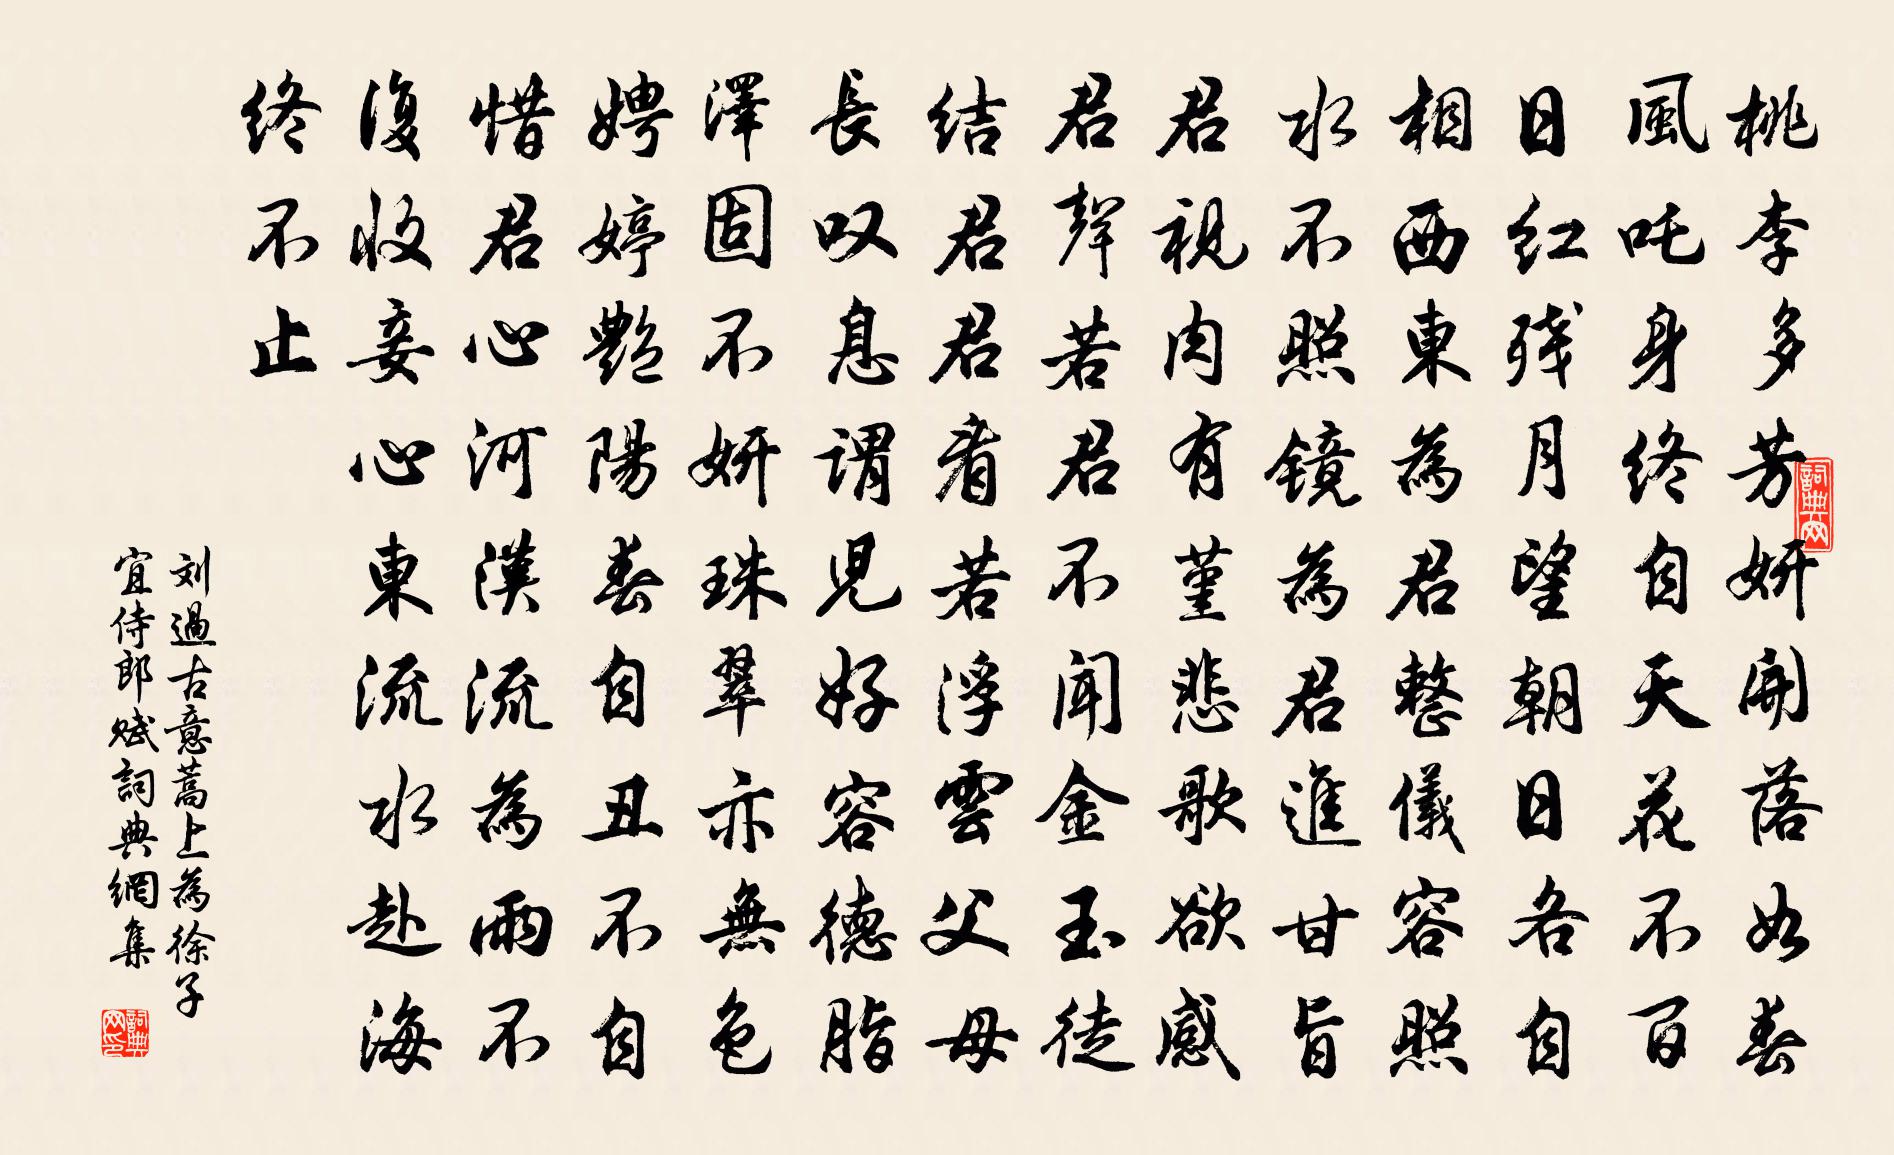 桃李多芳妍開落如春
風吒身終自天花不百
日红残月望朝日各自
相西東為君整儀容照
水不照镜為君進甘旨
君視肉有堇悲歌欲感
君聲若君不闻金玉徒
结君君看若浮雲父母
長叹息谓児好容德脂
澤固不妍珠翠亦無色
娉婷艷陽春自丑不自
惜君心河漢流為雨不
復收妾心東流水赴海
终不止
刘過古意蒿上為徐子
宜侍郎赋詞典網集
詞典网
詞典网印